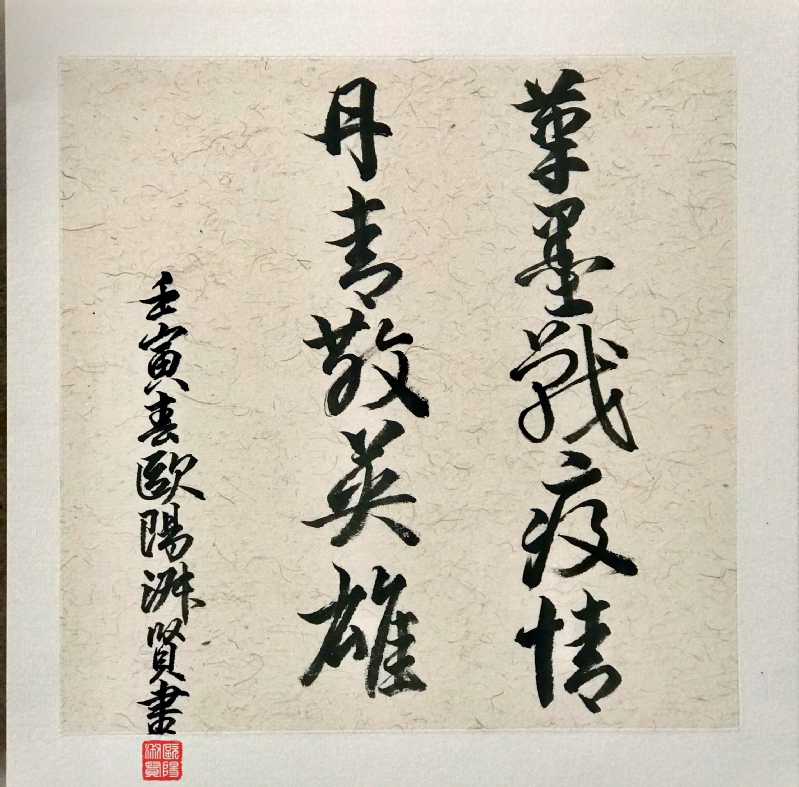 筆墨戰疫情
丹青敬英雄
壬寅春歐陽淑賢書
歐陽
淑賢